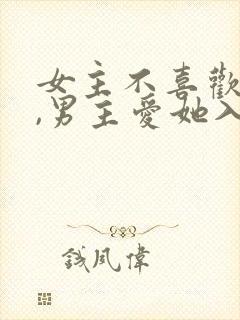 女主不喜歡
,男主愛她入
錢風偉